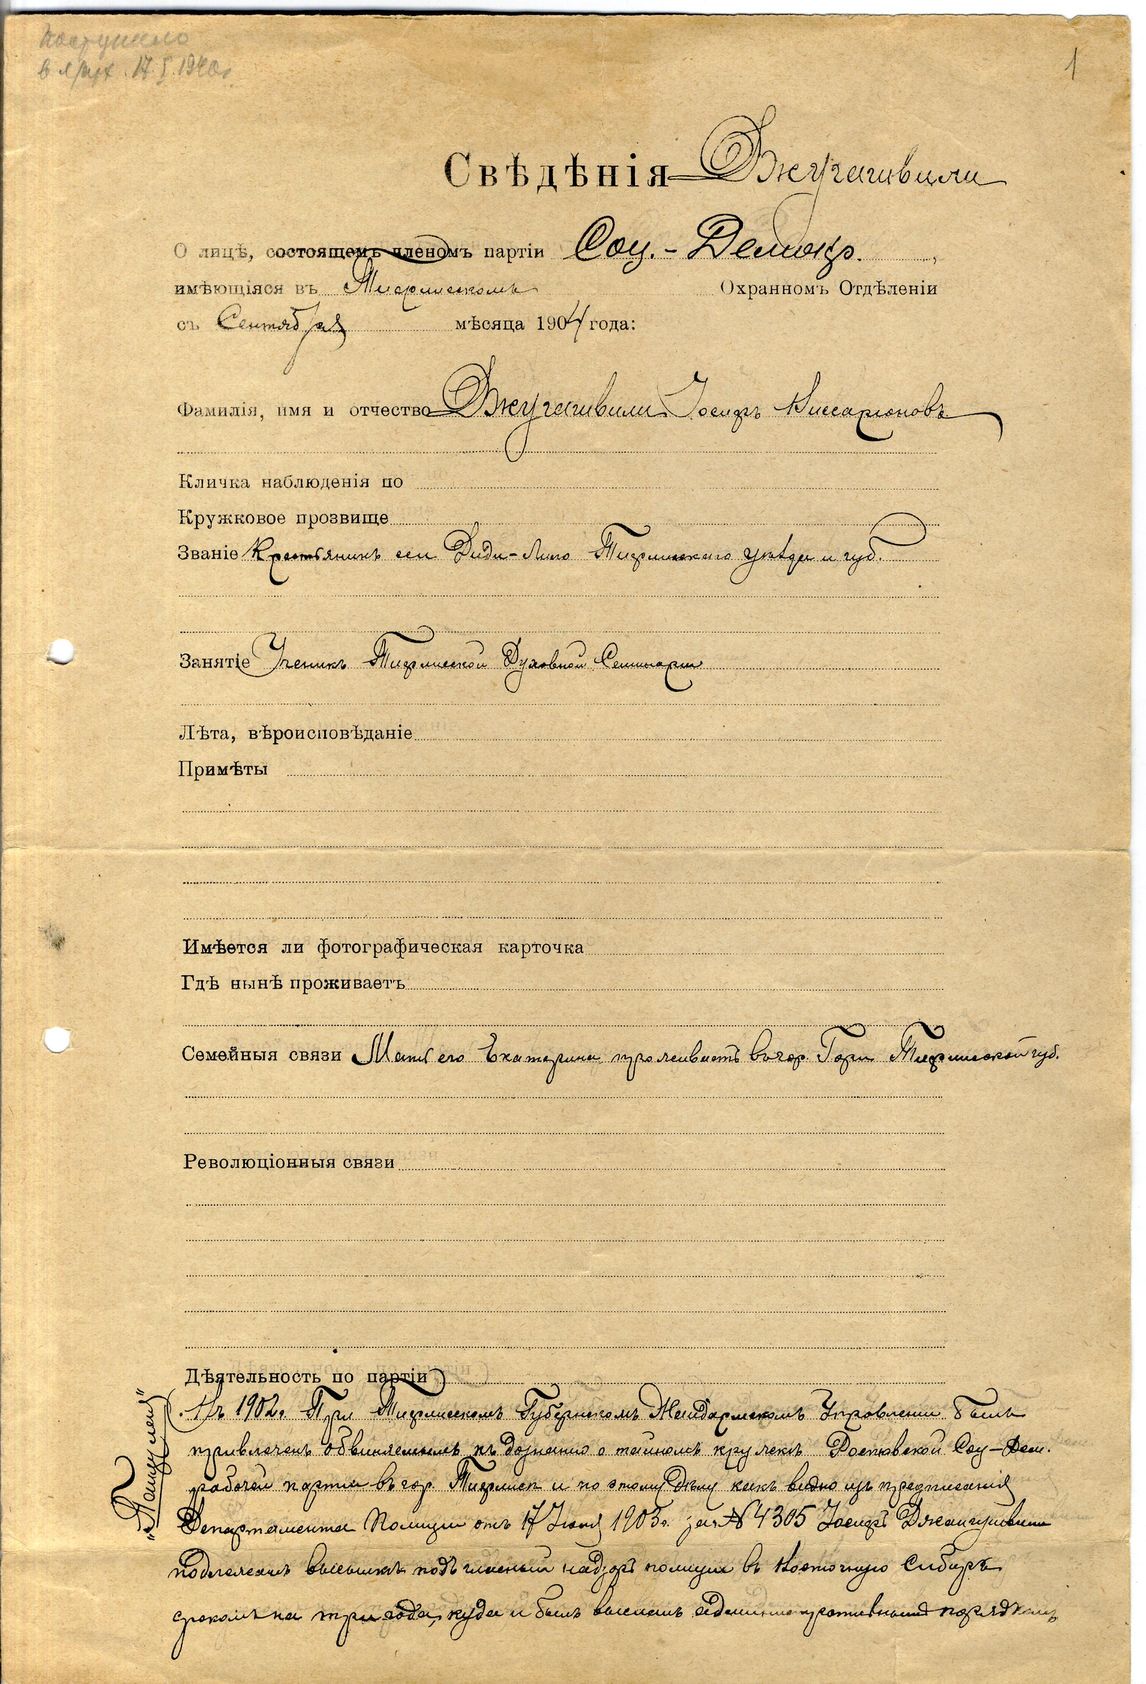 Поступило
в арх. 17.I.1940г.
1
Свѣдѣнія Джугашвили
О лицѣ, состоящемъ членомъ партіи Соц.-Демокр.,
имѣющіяся въ Тифлисскомъ Охранномъ Отдѣленіи
съ Сентября мѣсяца 1904 года:
Фамилія, имя и отчество Джугашвили Іосифъ Виссаріоновъ
Кличка наблюденія по
Кружковое прозвище
Званіе Крестьянинъ сел Диди-Лило Тифлисскаго уѣзда и губ.
Занятіе Ученикъ Тифлисской Духовной Семинаріи
Лѣта, вѣроисповѣданіе
Примѣты
Имѣется ли фотографическая карточка
Гдѣ нынѣ проживаетъ
Семейныя связи Мать его Екатерина проживаетъ въ гор. Гори Тифлисской губ.
Революціонныя связи
Дѣятельность по партіи
1) Въ 1902г. При Тифлисскомъ Губернскомъ Жандармскомъ Управленіи былъ
привлеченъ обвиняемымъ къ дознанію о тайномъ кружкѣ Россійской Соц-Дем.
рабочей партіи въ гор. Тифлисѣ и по этому дѣлу какъ видно изъ предписанія
Департамента Полиціи отъ 17 Іюня 1903г. за № 4305 Іосифъ Джугашвили
подлежалъ высылкѣ подъ гласный надзоръ полиціи въ Восточную Сибирь
срокомъ на три года, куда и былъ высланъ административнымъ порядкомъ